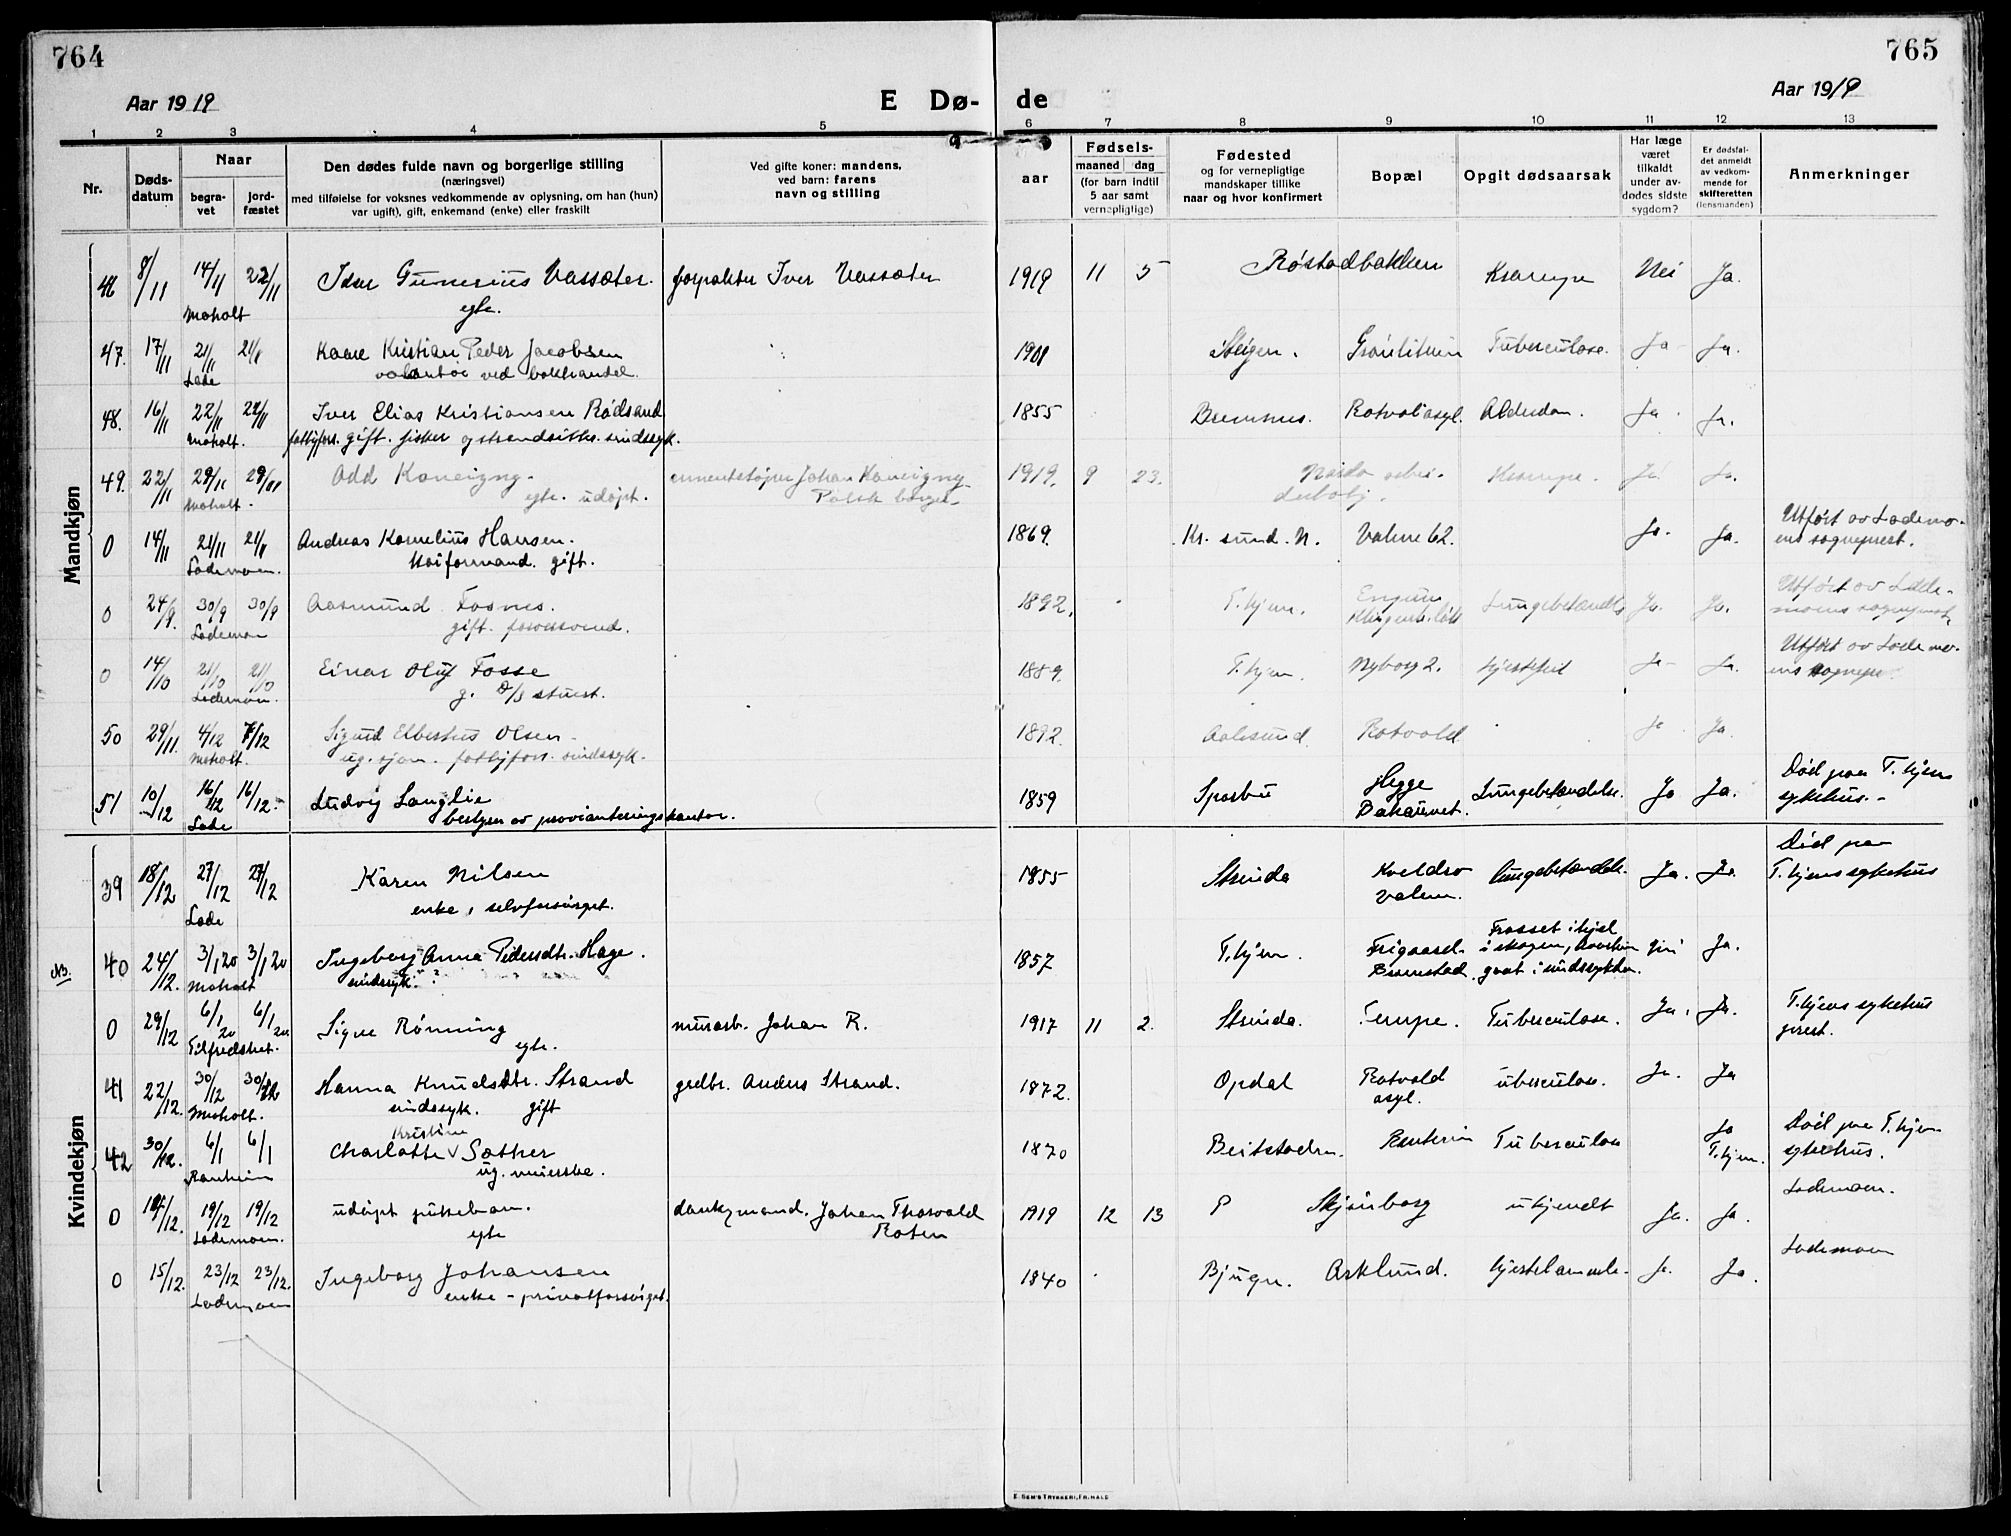 764
765
Aar 1919
E Dø- de
Aar 1919
1 2 3 4 5 6 7 8 9 10 11 12 13
Nr.
Døds-
datum
Naar
begra-
vet
jord-
fæstet
Den dødes fulde navn og borgerlige stilling
(næringsvei)
med tilføielse for voksnes vedkommende av oplysning, om han (hun)
var ugift), gift, enkemand (enke) eller fraskilt
Ved gifte koner: mandens,
ved barn: farens
navn og stilling
aar
Fødsels-
maaned dag
(for barn indtil
5 aar samt
vernepligtige)
Fødested
og for vernepligtige
mandskaper tillike
naar og hvor konfirmert
Bopæl
Opgit dødsaarsak
Har læge
været
tilkaldt
under av-
dødes sidste
sygdom?
Er dødsfal-
det anmeldt
av vedkom-
mende for
skifteretten
(lensmanden)
Anmerkninger
Mandkjøn
46 8/11 14/11 22/11 Gunerius Vassæter. forpakter Iver Vassæter 1919 11 5 Røstadbakken Krampe Nei Ja.
Moholt egte.
47. 17/11 21/11 21/11 Kaare Kristian Peder Jacobsen 1901 Steigen. Tuberculose. Ja Ja.
Lade volontør ved bokhandel.
48. 16/11 22/11 22/11 Iver Elias Kristiansen Rødsand 1855 Bremsnes. Rotvoll asyl. Alderdom. Ja. Ja.
Moholt. fattigfors. gift. fisker og strandsitter. sindssyk.
49. 22/11 29/11 29/11 Odd 1919. 9 23. Krampe. Ja. Ja.
Moholt. egte. udøpt. Polsk borger
0 14/11 21/11 21/11 Andreas Kornelius Hansen. 1869. Kr. sund. N. Ja. Ja. Utført av Lademo-
Lademoen. Kaiformand. gift. ens sogneprest.
0 24/9. 30/9 30/9 Aasmund Fosnes. 1892. T.hjem. Lungebetændelse Ja. Ja. Utført av Lade-
Lademoen gift. moens sogneprest.
0 14/10 21/10 21/10 Einar Oluf Fosse 1889. T.hjem. Nyborg 2. hjertefeil Ja Ja. Utført av Lademo-
Lademoen. g. D/S stuert. ens sognepr.
50 29/11. 4/12 7/12 Sigurd Olsen 1892. Aalesund. Rotvold Ja Ja.
Moholt. ug. sjøm. fattigfors. sindssyk.
51 10/12 16/12 16/12. Ludvig Langlie 1859 Sparbu Hegge Lungebetændelse. Ja Ja. Død paa T.hjems
Lade bestyrer av provianteringskontor. Bakaunet. sykehus.
Kvindekjøn
39 18/12 27/12 27/12 Karen Nilsen 1855 Strinda Kveldro lungebetændelse. Ja. Ja. Død paa
Lade enke, selvforsørget. T.hjems sykehus
NB. 40 24/12. 3/1 20 3/1 20 Ingeborg Anna Pedersdtr. Hage. 1857 T.hjem. Frosset ihjel i skogen, Nei Ja.
Moholt sindssyk? gaat i sindssykdom.
0 29/12 6/1 20 6/1 20. Signe Rønning murarb. Johan R. 1917 11 2. Strinda. Tempe. Tuberculose. Ja. Ja. T.hjems sykehus
Tilfredshet. egte. prest.
41 22/12. 30/12 30/12 Hanna Knudsdtr. Strand gdbr. Anders Strand. 1872. Opdal Rotvold asyl. tuberculose. Ja. Ja
Moholt. sindssyk. gift
42 30/12. 6/1 6/1 Charlotte Kristine Sæther 1870 Beitstaden. Tuberculose Ja T.hjem. Død paa T.hjem
Ranheim ug. meierske. sykehus.
0 14/12. 19/12 19/12 udøpt pikebarn. Johan Thorvald Roten 1919 12 13 Skjønborg ukjendt Ja. Ja. Lademoen.
Lademoen. egte
0 15/12. 23/12 23/12. Ingeborg Johansen 1840 Bjugn. Asklund. hjertelammelse. Ja. Ja. Lademoen
Lademoen enke - privatforsørget.
E. SEM'S TRYKKERI, FR. HALD